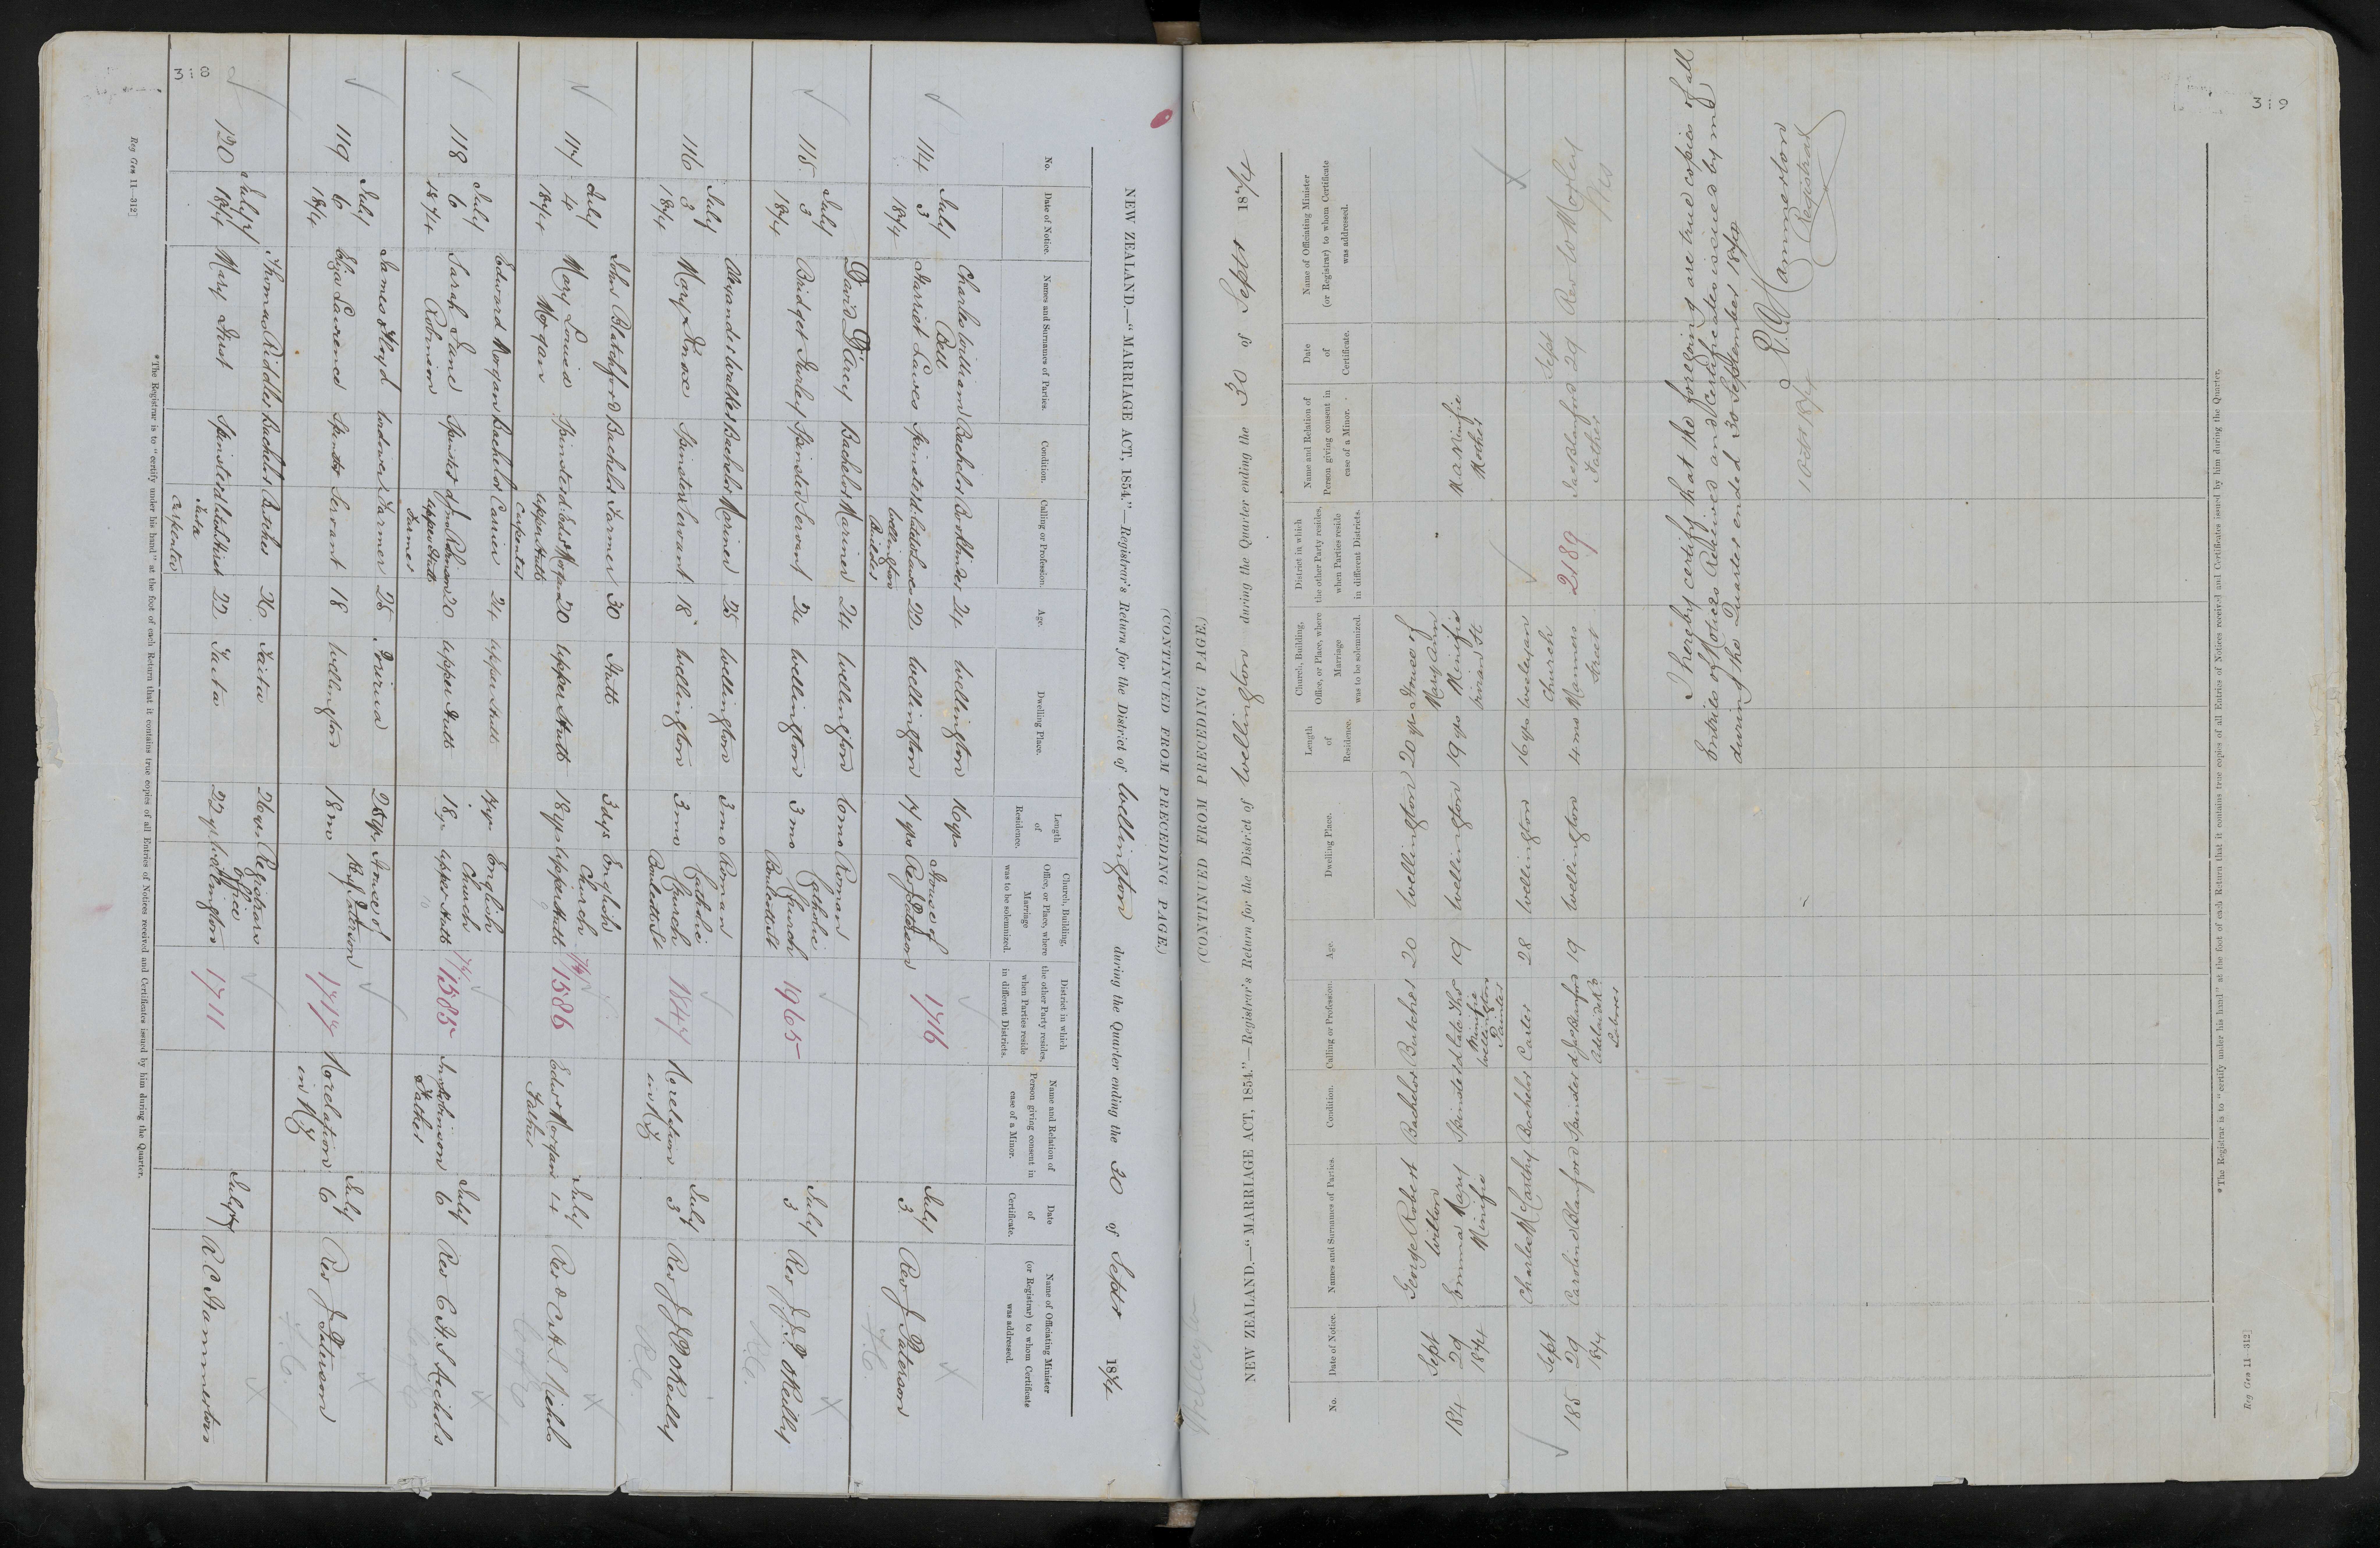 318
(CONTINUED FROM PRECEDING PAGE.)
NEW ZEALAND.—"MARRIAGE ACT, 1854."—Registrar's Return for the District of Wellington during the Quarter ending the 30 of Septr 1874
No.
Date of Notice.
Names and Surnames of Parties.
Condition.
Calling or Profession.
Age.
Dwelling Place.
Length of Residence.
Church, Building, Office, or Place, where Marriage was to be solemnized.
District in which the other Party resides, when Parties reside in different Districts.
Name and Relation of Person giving consent in case of a Minor.
Date of Certificate.
Name of Officiating Minister (or Registrar) to whom Certificate was addressed.
114 July 3 1874
Charles William Bell Bachelor Bookbinder 24 Wellington 16 yrs House of
Harriet Lawes Spinster 22 Wellington 17 yrs Rev J Paterson 1716 July 3 Rev J Paterson
Wellington
Builder
F.C.
115 July 3 1874
David D'Arcy Bachelor Mariner 24 Wellington 6 mo Roman Catholic
Bridget Turley Spinster Servant 21 Wellington 3 mo Church Boulcott St 1965 July 3 Rev J.J.P. O'Reilly
R.C.
116 July 3 1874
Alexander Walker Bachelor Mariner 25 Wellington 3 mo Roman Catholic
Mary Knox Spinster Servant 18 Wellington 3 mo Church Boulcott St 1847 No relation in NZ July 3 Rev J.J.P. O'Reilly
R.C.
117 July 4 1874
John Blatchford Bachelor Farmer 30 Hutt 3 dys English Church
Mary Louisa Morgan Spinster d. Edwd Morgan 20 Upper Hutt 18 yrs Upper Hutt 1586 Edwd Morgan Father July 4 Rev C.H.S. Nichols
Upper Hutt
Carpenter
C of E
118 July 6 1874
Edward Morgan Bachelor Carrier 24 Upper Hutt 17 yr English Church
Sarah Jane Robinson Spinster 20 Upper Hutt 18 yr Upper Hutt 1585 Jno Robinson Father July 6 Rev C.H.S. Nichols
Upper Hutt
Farmer
C of E
119 July 6 1874
James Floyd Widower Farmer 28 Porirua 28 yr House of
Eliza Lawrence Spinster Servant 18 Wellington 18 mo Rev J Paterson 1717 No relation in NZ July 6 Rev J. Paterson
F.C.
120 July 7 1874
Thomas Riddler Bachelor Butcher 26 Taita 26 yr Registrars Office
Mary Hirst Spinster 22 Taita 22 yr Wellington 1711 July 7 R C Hammerton
Taita
Carpenter
*The Registrar is to "certify under his hand" at the foot of each Return that it contains true copies of all Entries of Notices received and Certificates issued by him during the Quarter.
Reg Gen 11—312]
319
(CONTINUED FROM PRECEDING PAGE.)
NEW ZEALAND.—"MARRIAGE ACT, 1854."—Registrar's Return for the District of Wellington during the Quarter ending the 30 of Septr 1874
No.
Date of Notice.
Names and Surnames of Parties.
Condition.
Calling or Profession.
Age.
Dwelling Place.
Length of Residence.
Church, Building, Office, or Place, where Marriage was to be solemnized.
District in which the other Party resides, when Parties reside in different Districts.
Name and Relation of Person giving consent in case of a Minor.
Date of Certificate.
Name of Officiating Minister (or Registrar) to whom Certificate was addressed.
184 Sept 29 1874
George Robert Wilton Bachelor Butcher 20 Wellington 20 yr House of Mary Ann
Emma Mary Minifie Spinster d late Thos Minifie 19 Wellington 19 yrs Minifie Vivian St. M A Minifie Mother
Wellington
Painter
185 Sept 29 1874
Charles McCarthy Bachelor Carter 28 Wellington 16 yrs Wesleyan Church
Caroline Blanford Spinster d Jas Blanford 19 Wellington 4 mo Manners Street 2189 Jas Blanford Father Sept 29 Rev W Morley
Adelaide Rd
Laborer
Wes
I hereby certify that the foregoing are true copies of all
Entries of Notices Received and Certificates issued by me
during the Quarter ended 30 September 1874
R.C. Hammerton
Registrar
1 Octr 1874
*The Registrar is to "certify under his hand" at the foot of each Return that it contains true copies of all Entries of Notices received and Certificates issued by him during the Quarter.
Reg Gen 11—312]